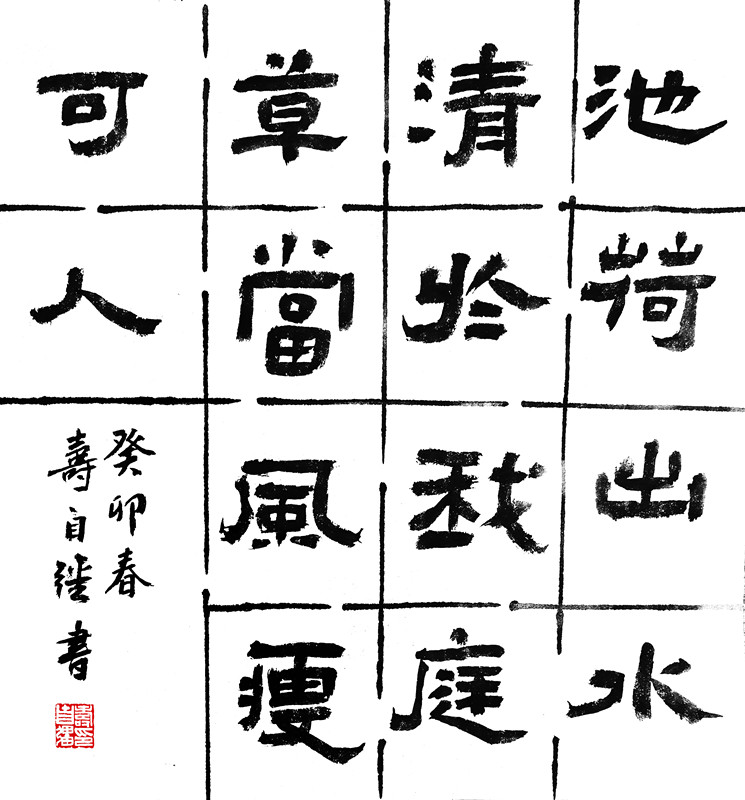 池荷出水
清於我庭
草當風瘦
可人
癸卯春
壽自書